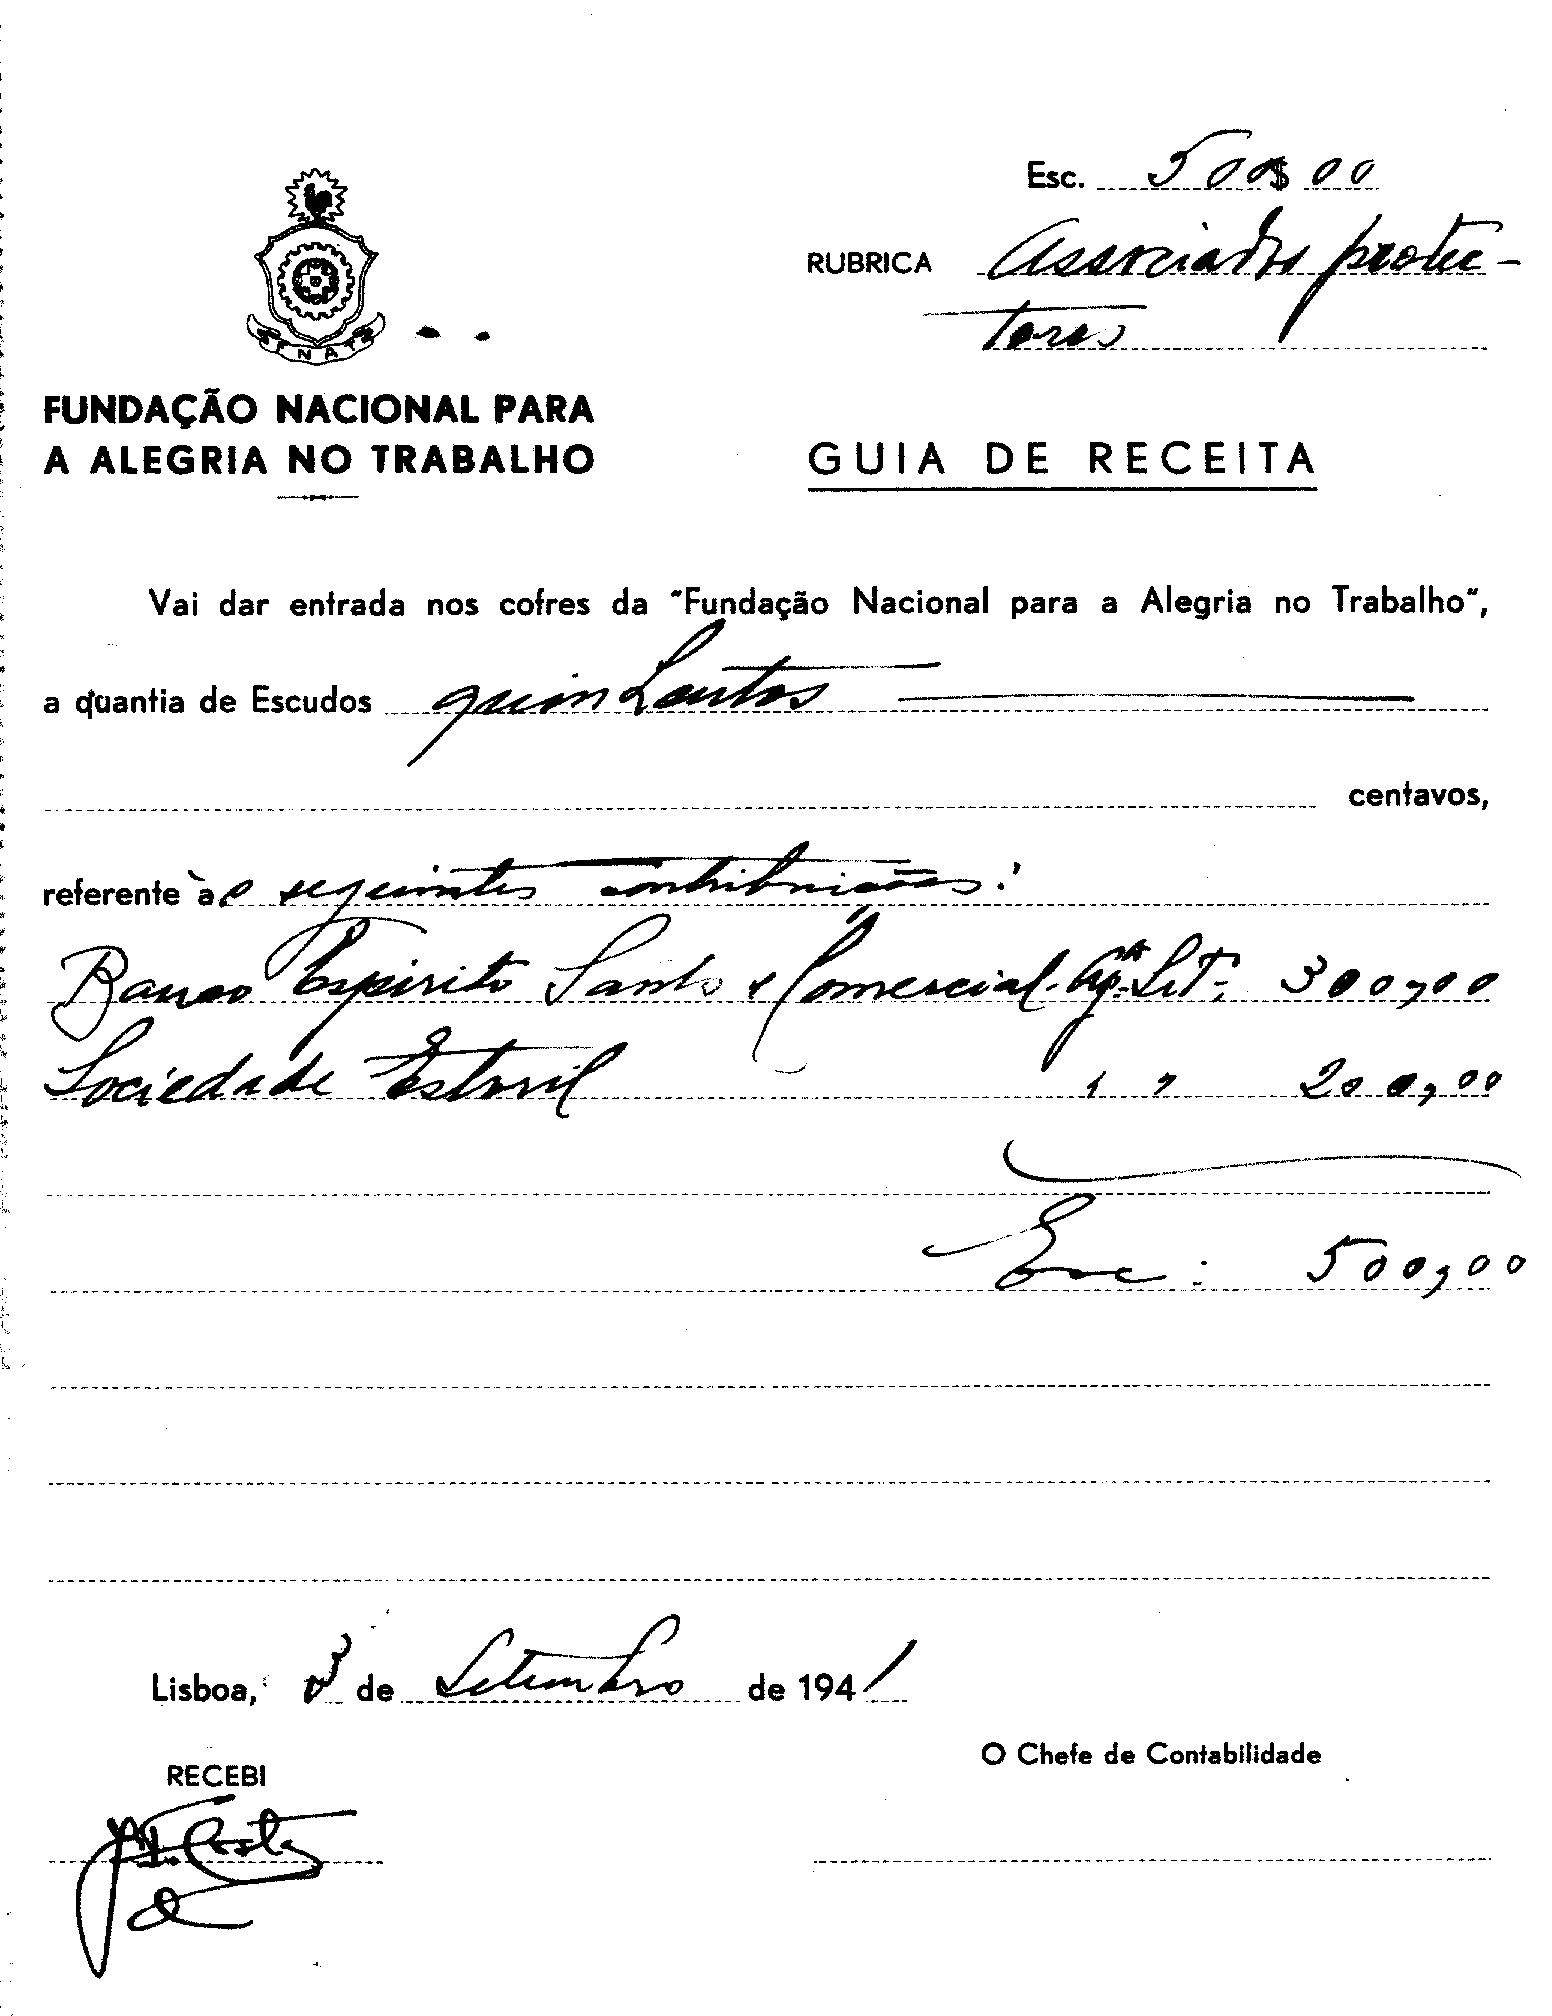 Esc. 500$00
RUBRICA Associados protec-
tores
FNAT
FUNDAÇÃO NACIONAL PARA
A ALEGRIA NO TRABALHO
GUIA DE RECEITA
Vai dar entrada nos cofres da "Fundação Nacional para a Alegria no Trabalho",
a quantia de Escudos quinhentos
centavos,
referente às seguintes contribuições:
Banco Espirito Santo e Comercial. Agª. Set. 300,00
Sociedade Estoril " " 200,00
Esc: 500,00
Lisboa, 3 de Setembro de 1941
O Chefe de Contabilidade
RECEBI
Costa